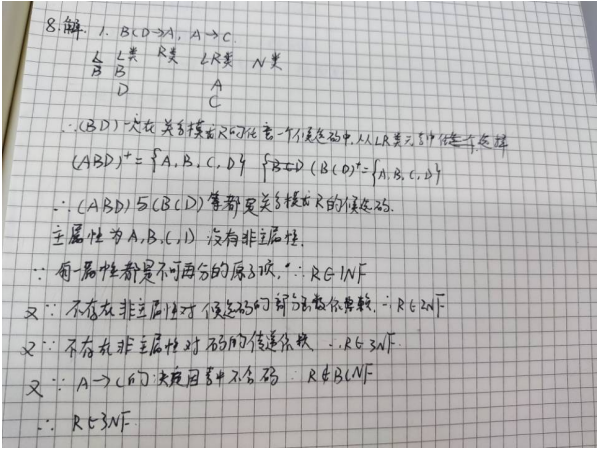 8.解. 1. BCD→A, A→C
L类 R类 LR类 N类
B
D A
C
∴(BD)一定在关系模式R的任意一个候选码中,从LR类元素中选择
(ABD)⁺={A,B,C,D} (BCD)⁺={A,B,C,D}
∴(ABD)与(BCD)等都是关系模式R的候选码.
主属性为A,B,C,D 没有非主属性.
∵每一属性都是不可再分的原子项, ∴R∈1NF
又∵不存在非主属性对候选码的部分函数依赖, ∴R∈2NF
又∵不存在非主属性对码的传递依赖 ∴R∈3NF.
又∵A→C的决定因素中不含码 ∴R∉BCNF
∴ R∈3NF.